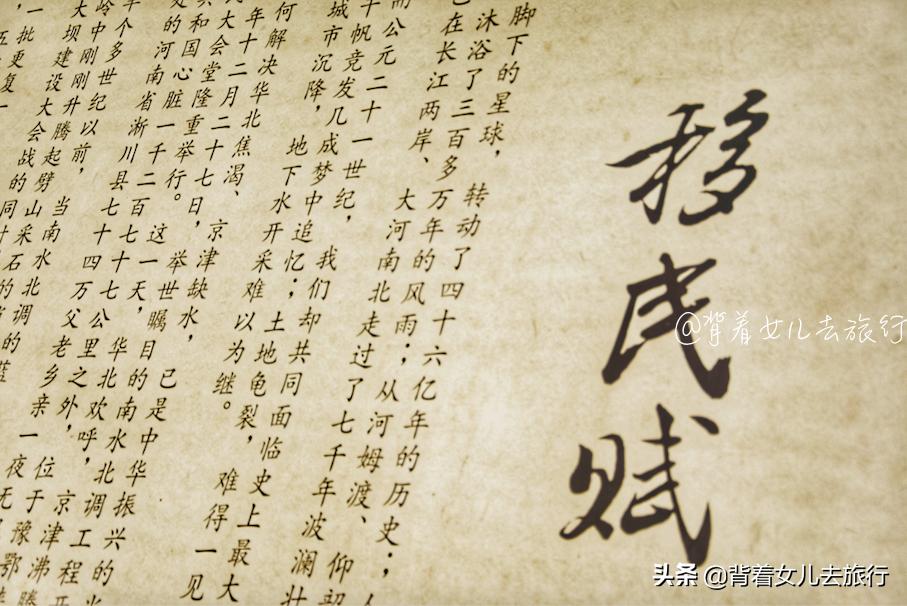 移民赋
脚下的星球,转动了四十六亿年的历史;
沐浴了三百多万年的风雨;从河姆渡、仰韶
已在长江两岸、大河南北走过了七千年波澜壮
而公元二十一世纪,我们却共同面临史上最大
千帆竞发几成梦中追忆;土地龟裂,难得一见
城市沉降,地下水开采难以为继。
何解决华北焦渴、京津缺水,已是中华振兴的
年十二月二十七日,举世瞩目的南水北调工程开
大会堂隆重举行。这一天,华北欢呼,京津沸腾
和国心脏一千二百七十七公里之外,位于豫鄂
的河南省淅川县七十四万父老乡亲一夜无
个多世纪以前,当南水北调的蓝
岭中刚刚升腾起劈山采石的
大坝建设大会战的同时
一批更
@背着女儿去旅行
头条 @背着女儿去旅行